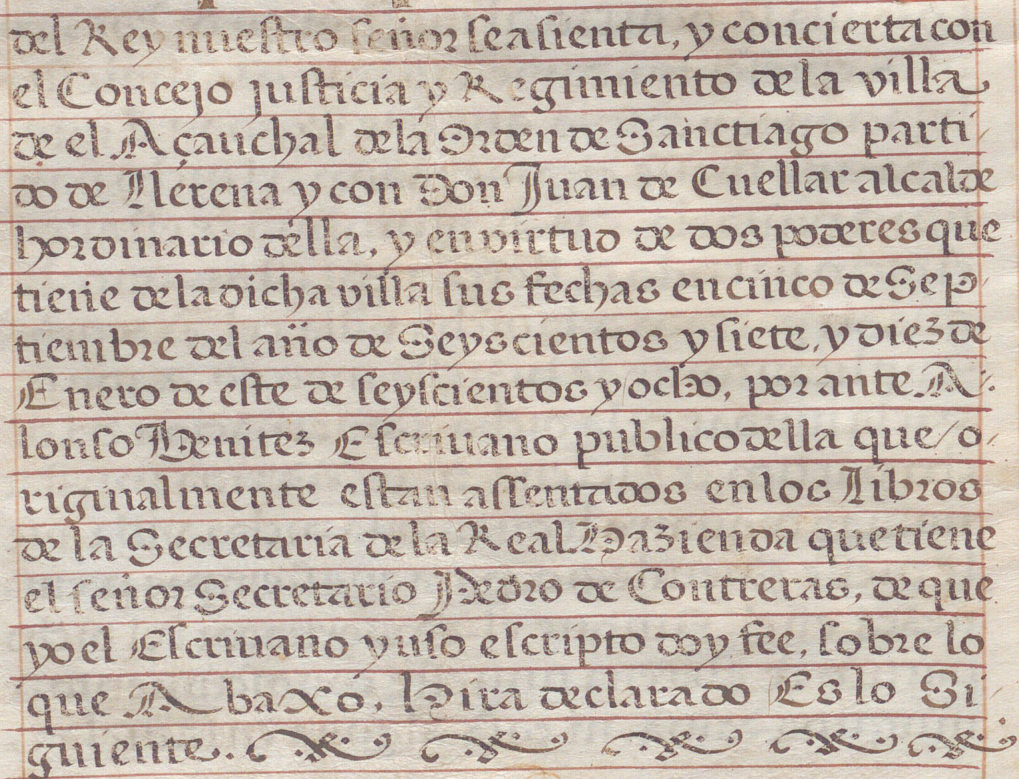 del Rey nuestro señor se asienta, y concierta con
el Concejo justicia y Regimiento de la villa
de el Açauchal de la Orden de Sanctiago parti
do de Llerena y con Don Juan de Cuellar alcalde
hordinario della, y en virtud de dos poderes que
tiene de la dicha villa sus fechas en cinco de Sep
tiembre del año de Seyscientos y siete, y diez de
Enero de este de seyscientos y ocho, por ante A
lonso Benitez Escriuano publico della que o
riginalmente estan assentados en los Libros
de la Secretaria de la Real Hazienda que tiene
el señor Secretario Pedro de Contreras, de que
yo el Escriuano yuso escripto doy fee, sobre lo
que Abaxo, Hira declarado Es lo Si
guiente.